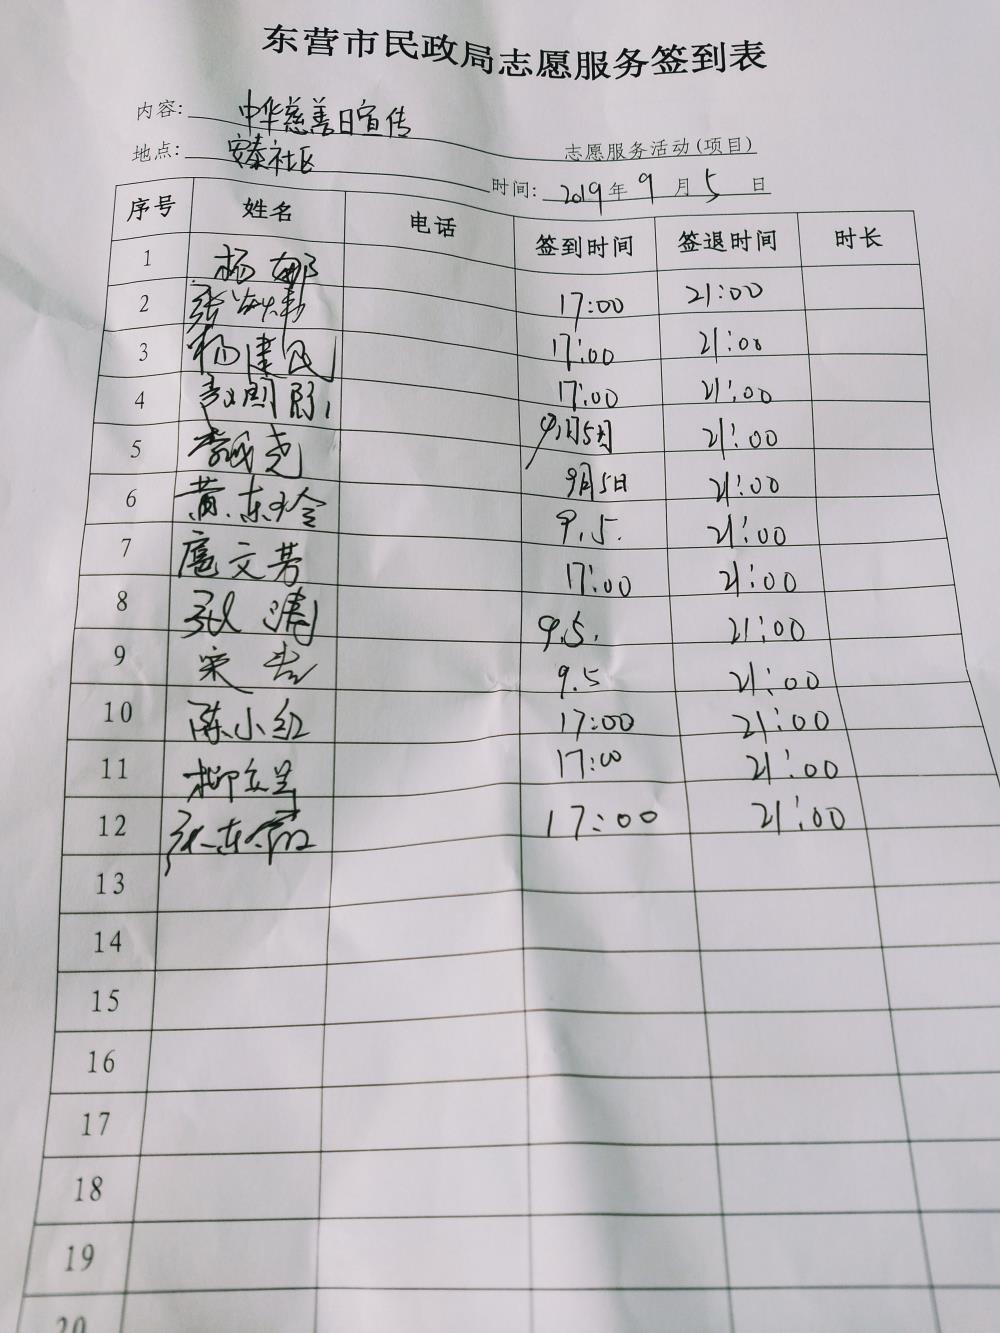 东营市民政局志愿服务签到表
内容: 中华慈善日宣传 志愿服务活动(项目)
地点: 安泰社区 时间: 2019年9月5日
序号 姓名 电话 签到时间 签退时间 时长
1 杨娜 17:00 21:00
2 17:00 21:00
3 杨建民 17:00 21:00
4 9月5日 21:00
5 9月5日 21:00
6 黄东玲 9.5. 21:00
7 扈文芳 17:00 21:00
8 张涛 9.5. 21:00
9 宋 9.5 21:00
10 陈小红 17:00 21:00
11 柳 17:00 21:00
12 张东 17:00 21:00
13
14
15
16
17
18
19
20